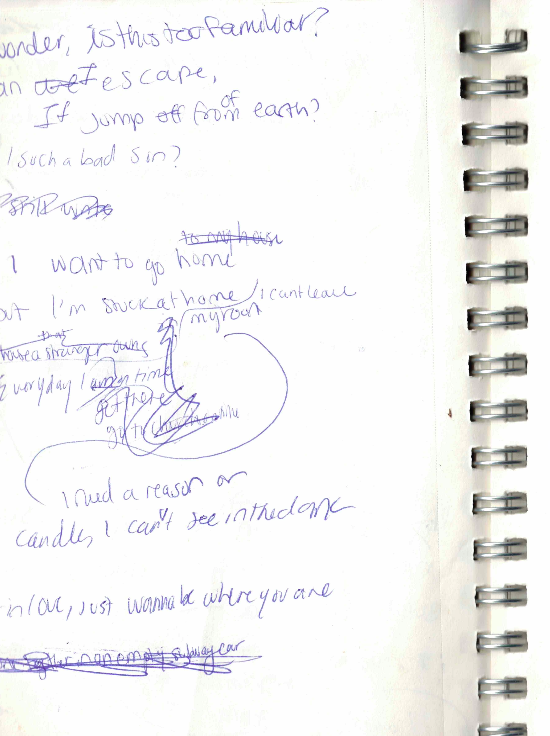 wonder, is this too familiar?
an I escape,
If jump off from of earth?
I such a bad sin?
to my house
I want to go home
but I'm stuck at home / i cant leave
my room
that
house a stranger owns
Everyday I time
get here
go to
I need a reason or
candles, I can't see in the dark
in love, just wanna be where you are
in an empty subway car